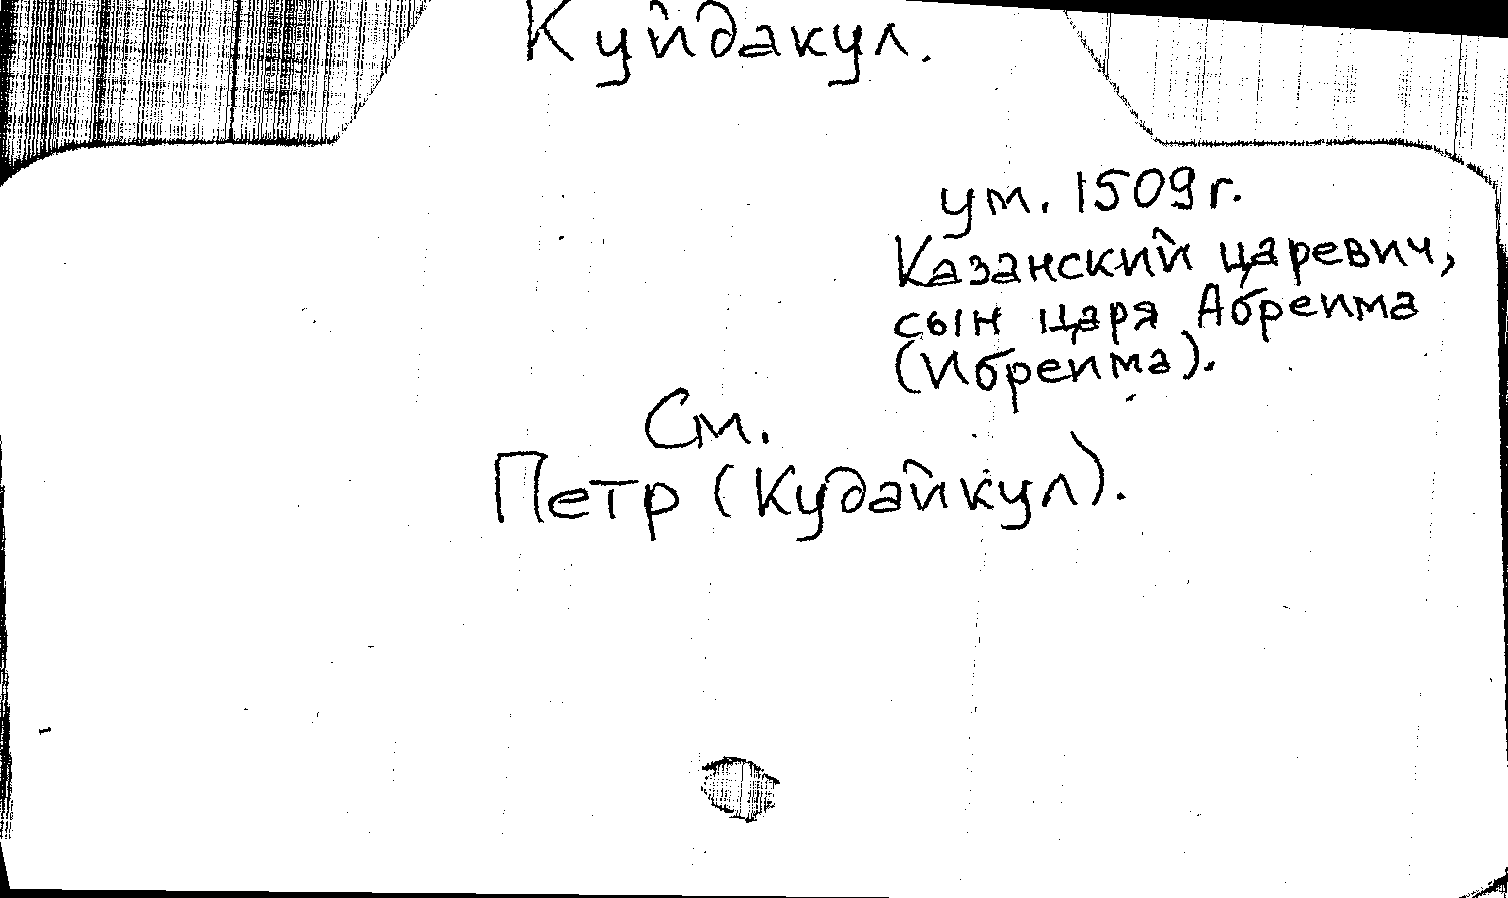 Куйдакул.
ум. 1509 г.
Казанский царевич,
сын царя Абреима
(Ибреима).
См.
Петр (Кудайкул).